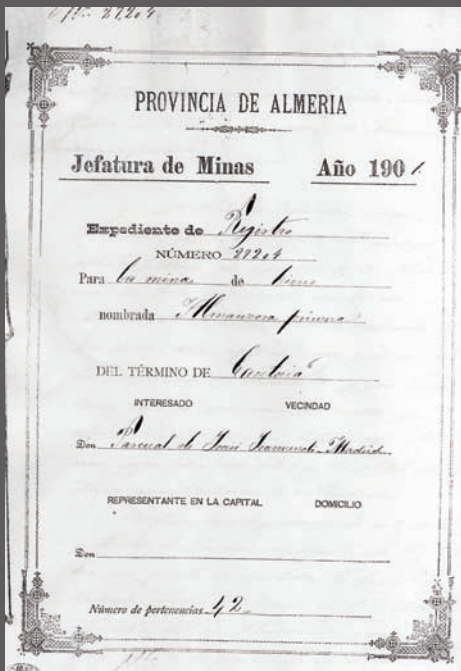 27204
PROVINCIA DE ALMERIA
Jefatura de Minas Año 1901.
Expediente de Registro
NÚMERO 27204
Para la mina de hierro
nombrada Almanzora primera
DEL TÉRMINO DE Cantoria
INTERESADO VECINDAD
Don Pascual de Madrid
REPRESENTANTE EN LA CAPITAL DOMICILIO
Don
Número de pertenencias 42